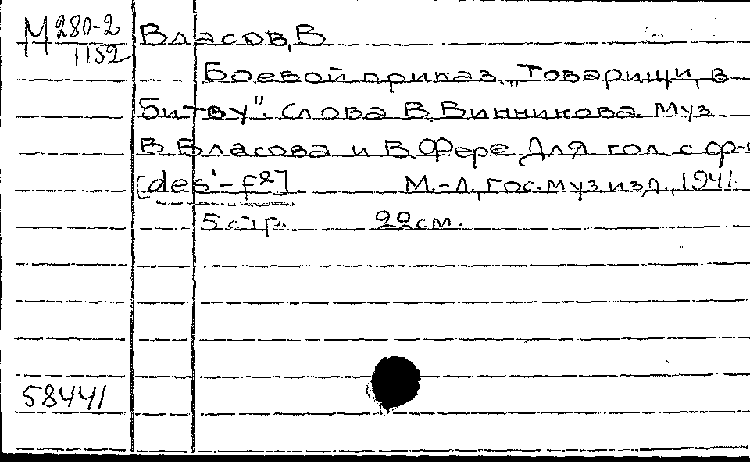 М 280-2
1152
Власов, В
Боевой приказ. „Товарищи, в
битву". Слова В. Винникова. Муз
В. Власова и В. Фере. Для гол. с фр-
[des'-f2] М.-Л, гос. муз. изд, 1941.
5 стр. 22 см.
58441